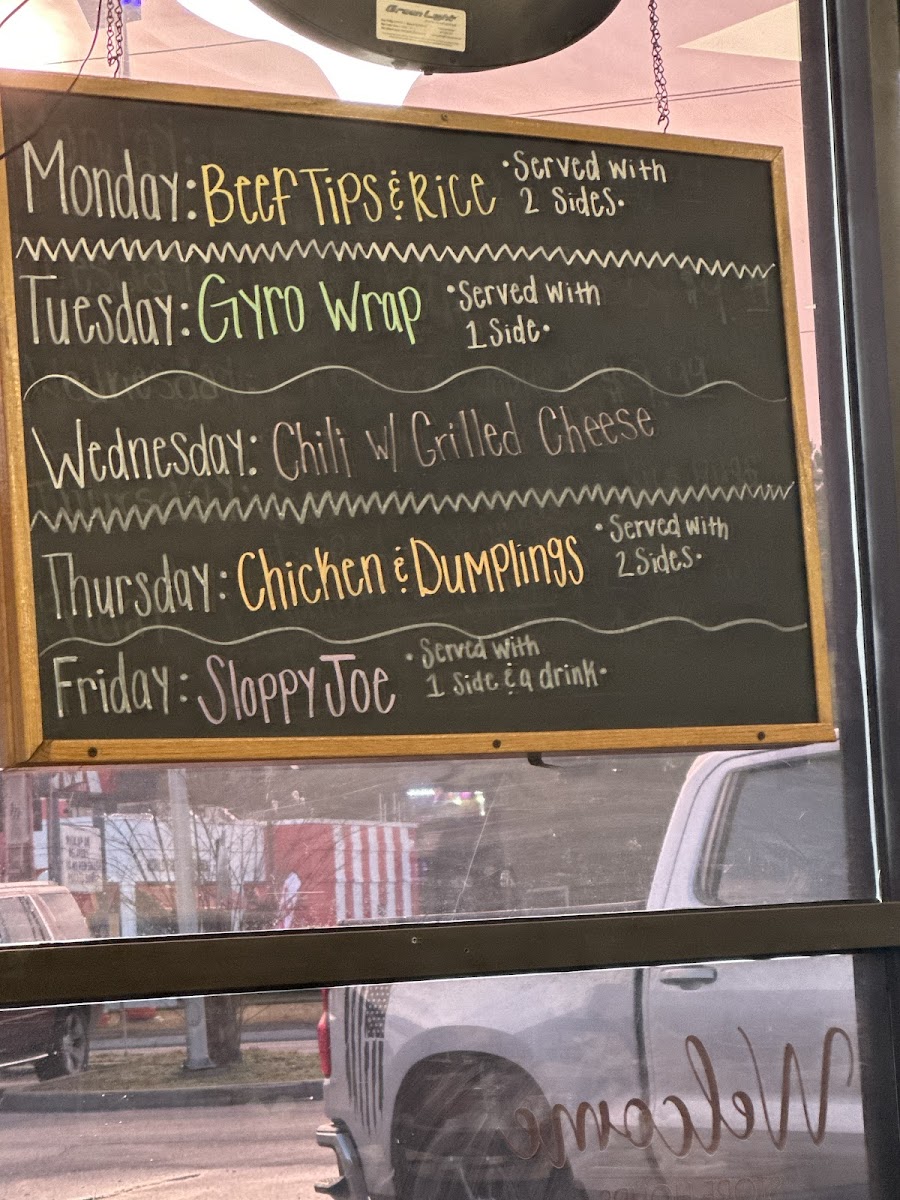 Green Light
Monday: Beef Tips & Rice
•Served with
2 Sides•
Tuesday: Gyro Wrap
•Served with
1 Side•
Wednesday: Chili w/ Grilled Cheese
Thursday: Chicken & Dumplings
•Served with
2 Sides•
Friday: Sloppy Joe
•Served with
1 Side & a drink•
Welcome